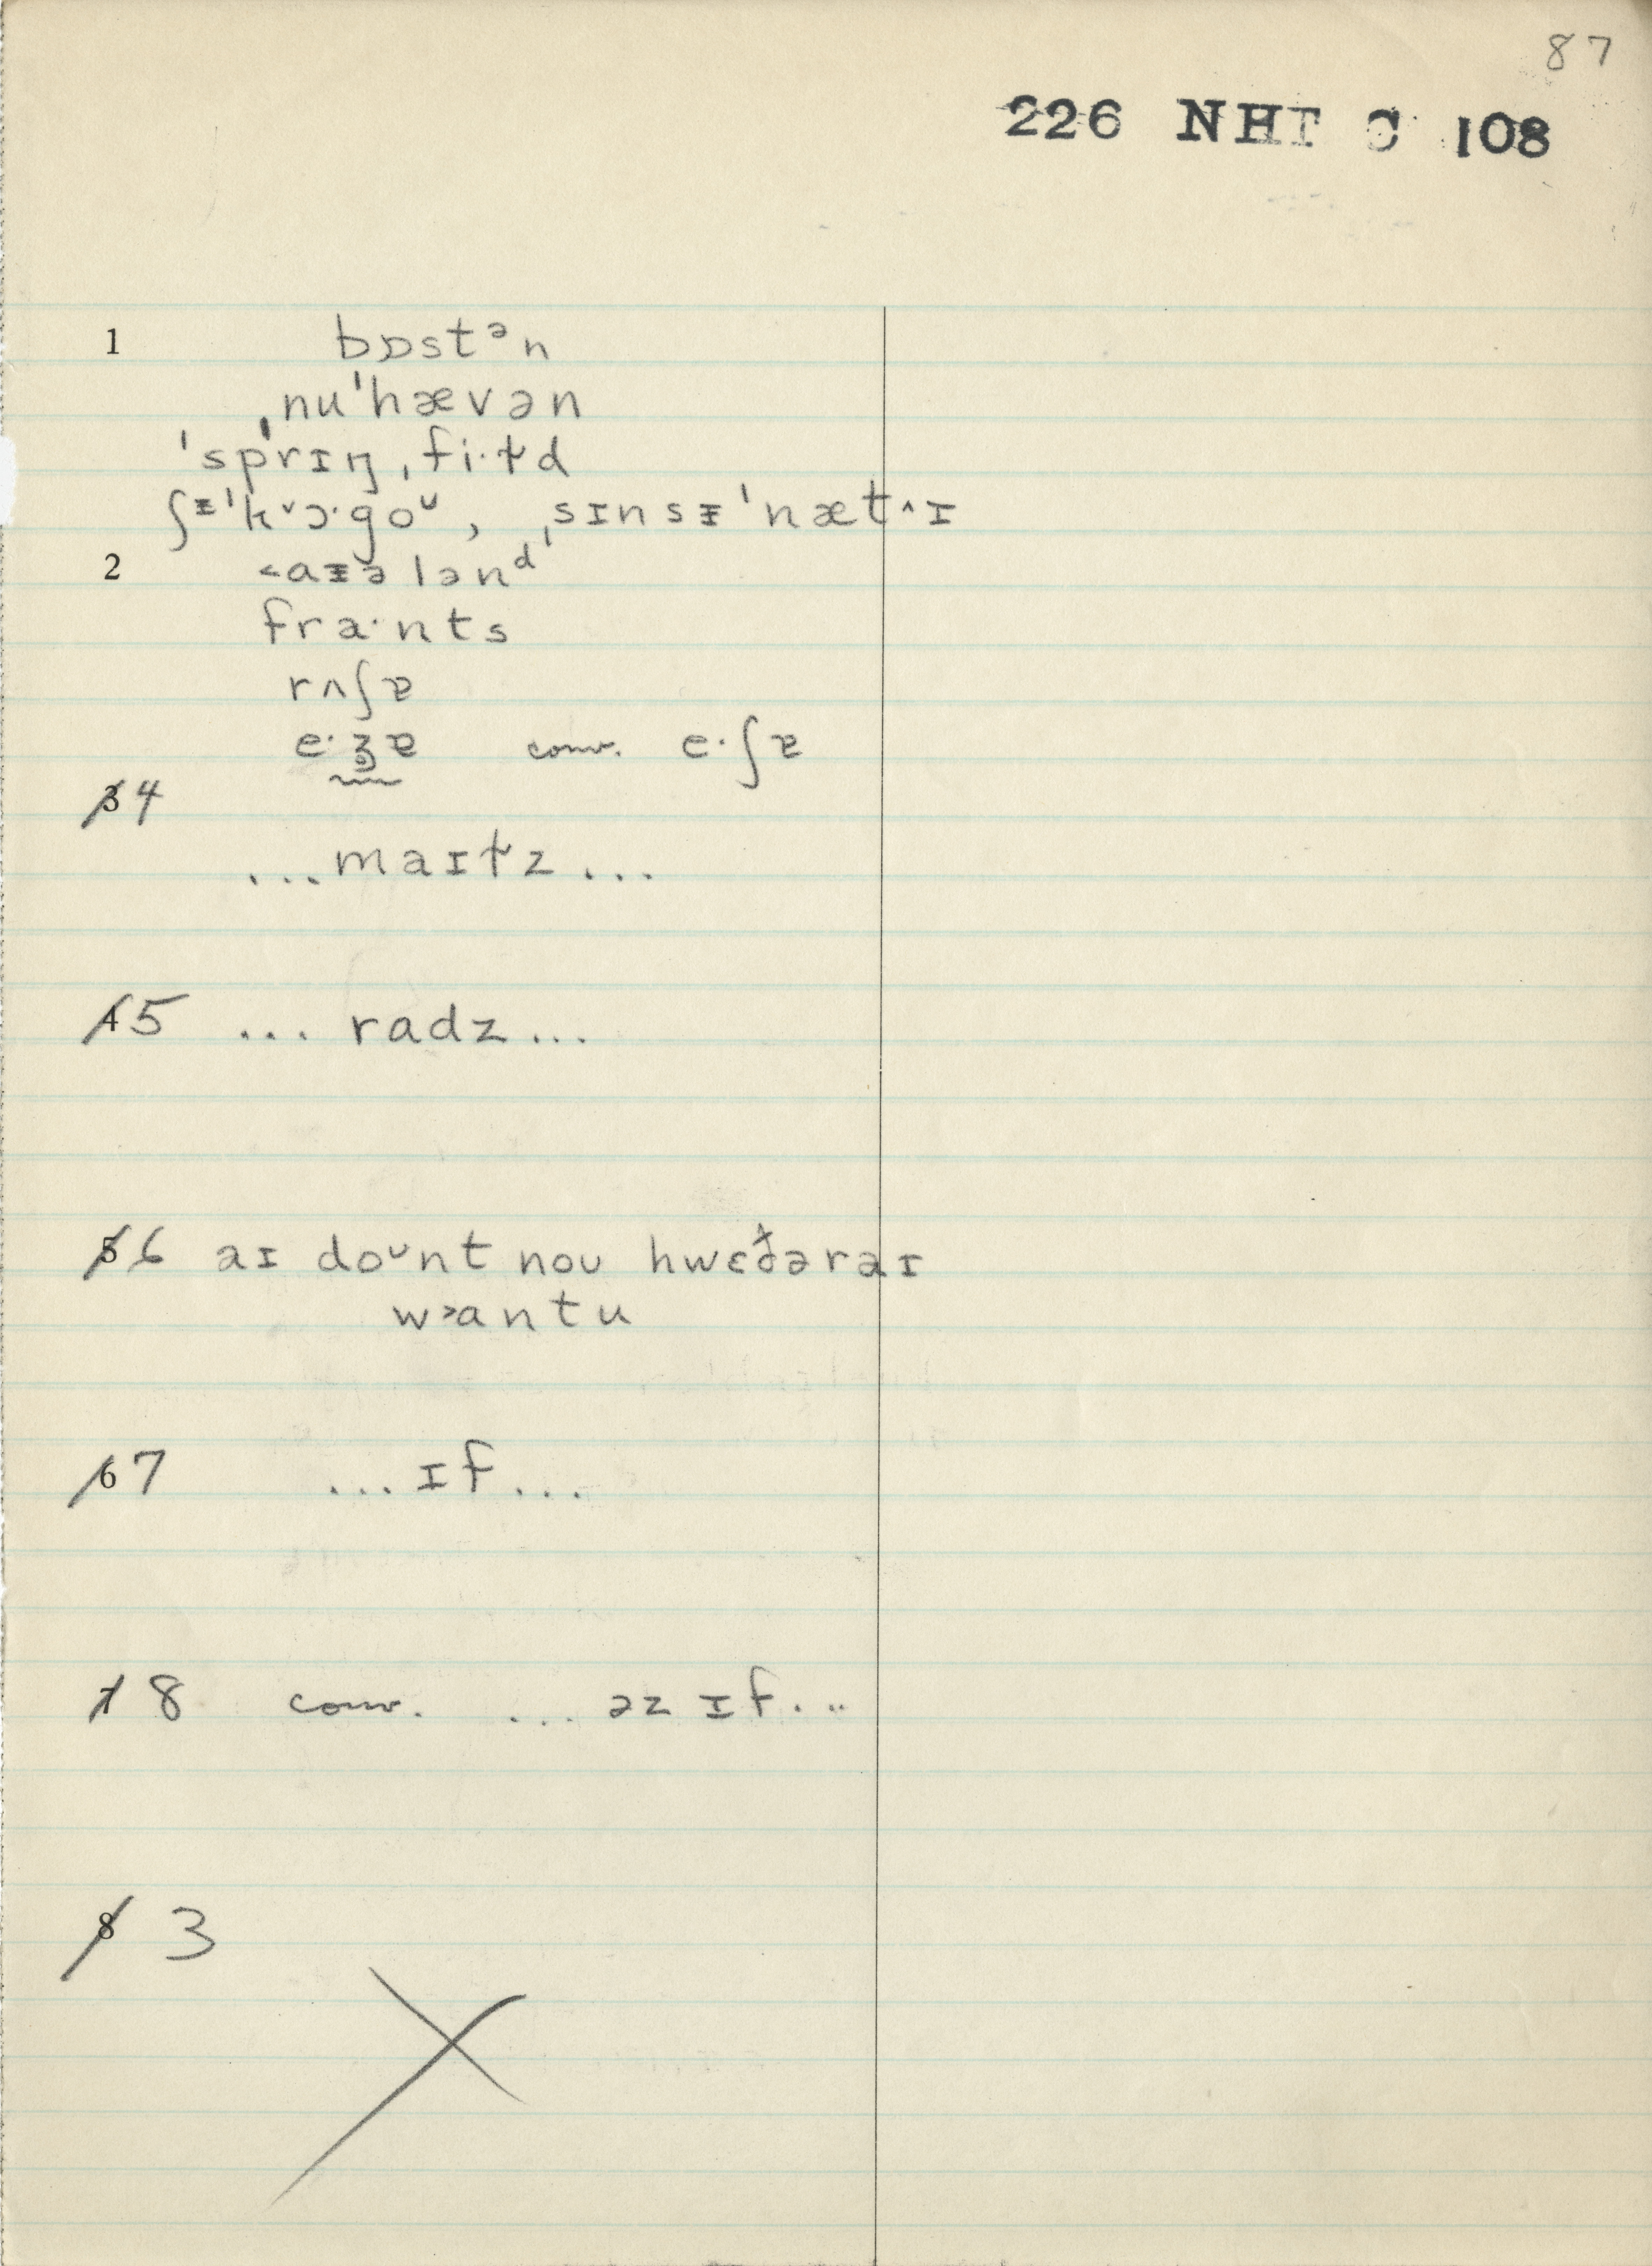 87
226 NHT C 108
1 bɒstᵊn
ˌnuˈhævən
ˈsprɪŋˌfi·ɫd
ʃᵻˈk˅ɔ·goᶷ, ˌsɪnsᵻˈnæt^ɪ
2 <aᵻələnᵈ
fra·nts
rʌʃɐ
e·ʒ̥ɐ conv. e·ʃɐ
3 4
...maɪɫz...
4 5 ... radz...
5 6 aɪ doᶷnt noʊ hwɛðəraɪ
w>antu
6 7 ...ɪf...
7 8 conv. ... əz ɪf...
8 3